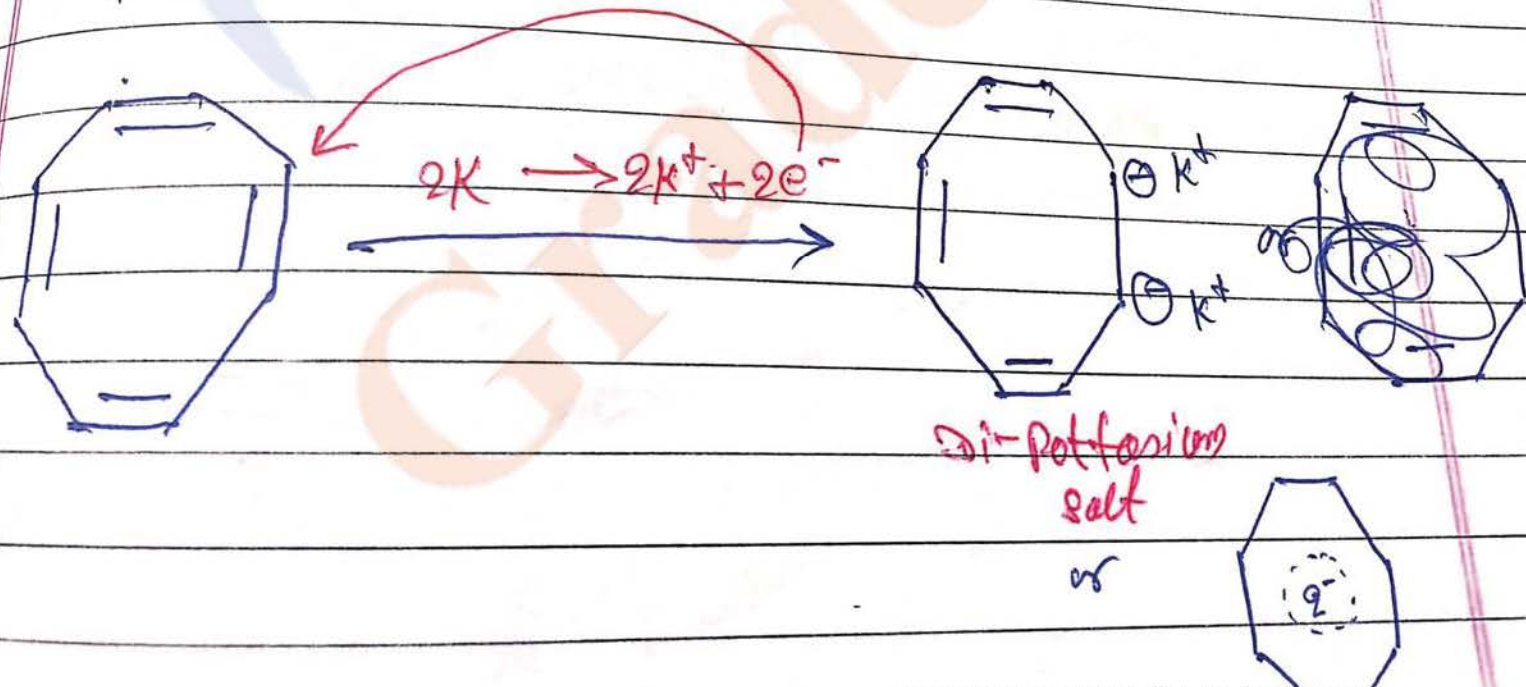 2K → 2K⁺ + 2e⁻
⊖ K⁺
⊖ K⁺
or
Di-Pottasium
salt
or
2⁻
Grad